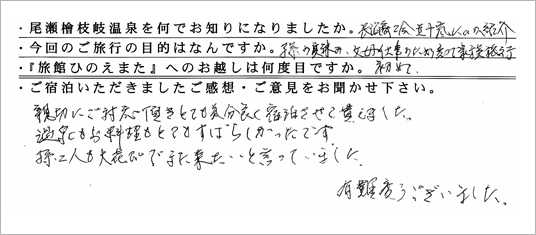 ・尾瀬檜枝岐温泉を何でお知りになりましたか。 の紹介
・今回のご旅行の目的はなんですか。孫の夏休み、父母仕事のため 家族旅行
・『旅館ひのえまた』へのお越しは何度目ですか。 初めて
・ご宿泊いただきましたご感想・ご意見をお聞かせ下さい。
親切にご対応頂きとても気分良く宿泊させて貰えました。
温泉もお料理もとてもすばらしかったです
孫二人も大喜びでまた来たいと言っていました。
有難度うございました。